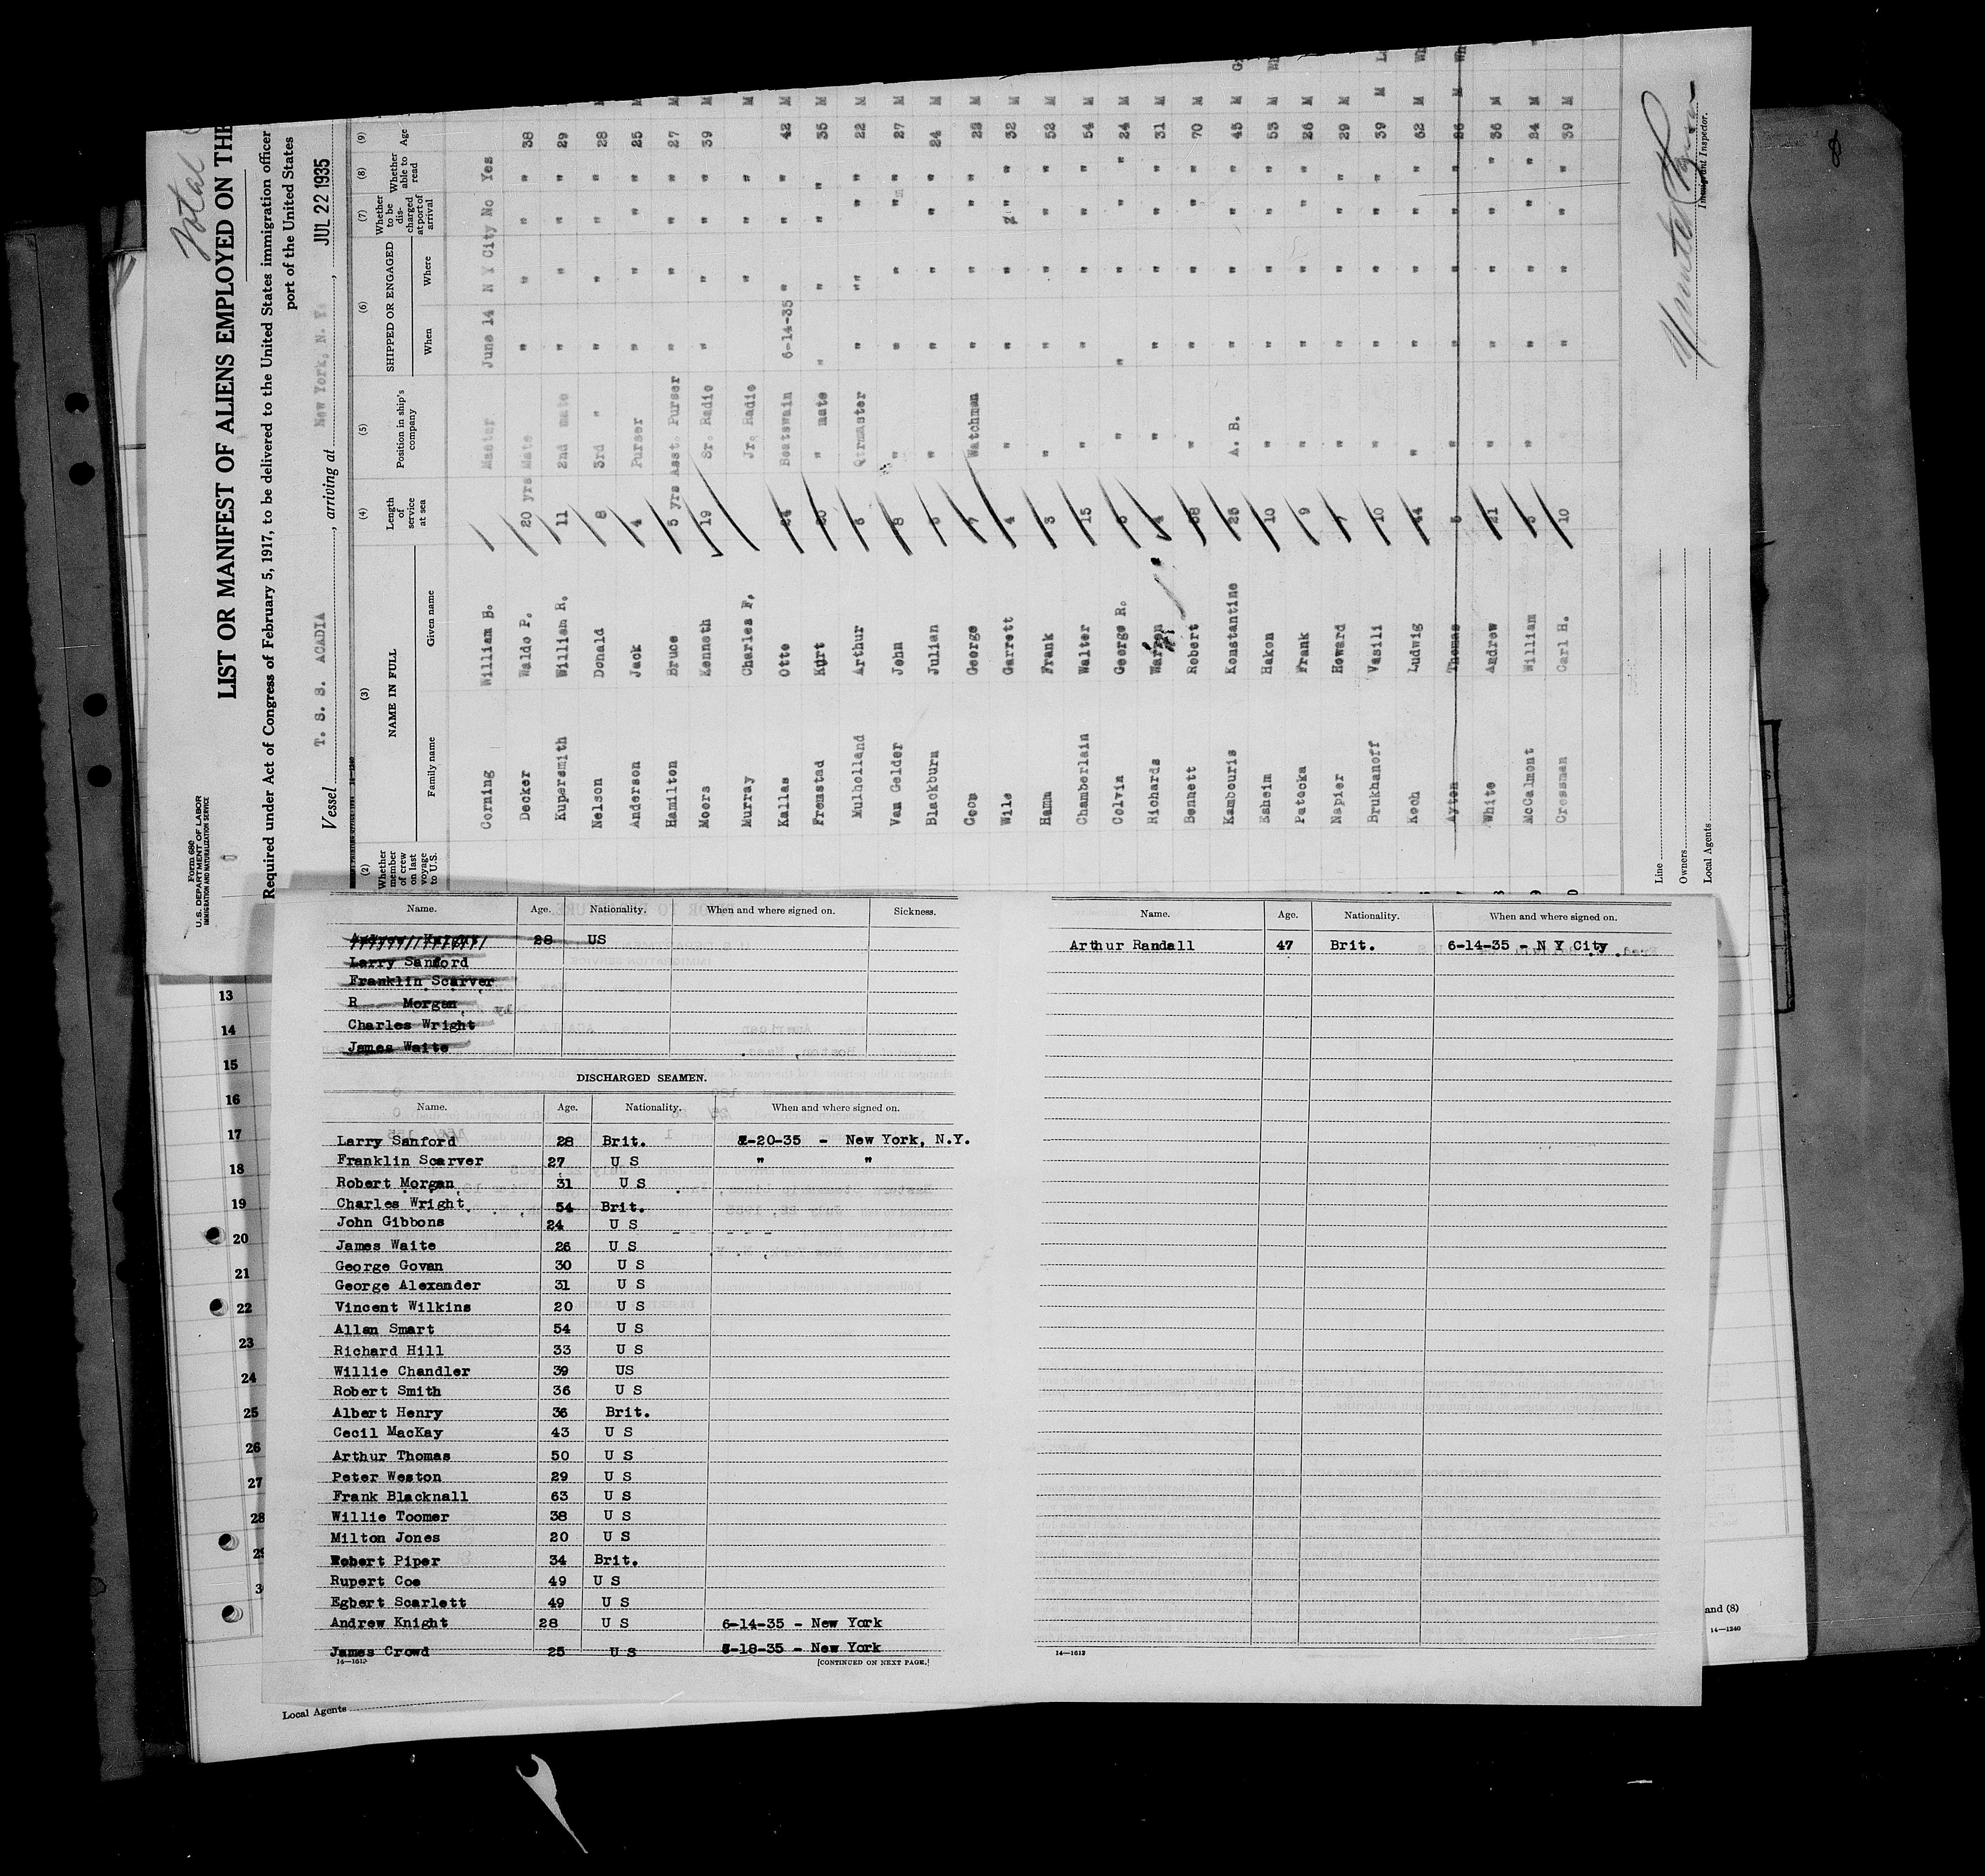 Total
Form 680
U.S. DEPARTMENT OF LABOR
IMMIGRATION AND NATURALIZATION SERVICE
LIST OR MANIFEST OF ALIENS EMPLOYED ON THE
Required under Act of Congress of February 5, 1917, to be delivered to the United States immigration officer
port of the United States
Vessel T. S. S. ACADIA, arriving at New York, N. Y., JUL 22 1935
(2) (3) (4) (5) (6) (7) (8) (9)
Whether member of crew on last voyage to U.S. NAME IN FULL Length of service at sea Position in ship's company SHIPPED OR ENGAGED Whether to be discharged at port of arrival Whether able to read Age
Family name Given name When Where
Corning William B. Master June 14 N Y City No Yes
Decker Waldo P. 20 yrs Mate " " " " 38
Kupersmith William R. 11 2nd mate " " " " 29 M
Nelson Donald 8 3rd " " " " " 28 M
Anderson Jack 4 Purser " " " " 25 M
Hamilton Bruce 5 yrs Asst. Purser " " " " 27 M
Moors Kenneth 19 Sr. Radio " " " " 39 M
Murray Charles F. Jr. Radio " " M
Kallas Otto 24 Boatswain 6-14-35 " " " 42 M
Fremstad Kurt 20 " mate " " " " 35 M
Mulholland Arthur 6 Qtrmaster " "" " " 22 M
Van Gelder John 8 " " " " " 27 M
Blackburn Julian 5 " " " " " 24 M
Coon George 7 Watchman " " " " 28 M
Wile Garrett 4 " " " " " 32 M
Hamm Frank 3 " " " " " 52 M
Chamberlain Walter 15 " " " " " 54 M
Colvin George R. " " " " " 24 M
Richards Warren 4 " " " " " 31 M
Bennett Robert 58 " " " " " 70 M
Kambouris Konstantine 25 A. B. " " " " 45 M
Esheim Hakon 10 " " " " " 53 M
Patocka Frank 9 " " " " " 26 M
Napier Howard 7 " " " " " 29 M
Brukhanoff Vasili 10 " " " " " 39 M
Koch Ludwig 44 " " " " " 62 M
Ayton Thomas 5 " " " " " 26 M
White Andrew 21 " " " " " 36 M
McCalmont William 5 " " " " " 34 M
Cressman Carl H. 10 " " " " 39 M
Line
Owners
Local Agents
Immigrant Inspector.
Name. Age. Nationality. When and where signed on. Sickness.
Andrew Knight 28 US
Larry Sanford
Franklin Scarver
R Morgan
Charles Wright
James Waite
DISCHARGED SEAMEN.
Name. Age. Nationality. When and where signed on.
Larry Sanford 28 Brit. -20-35 - New York, N.Y.
Franklin Scarver 27 U S " "
Robert Morgan 31 U S
Charles Wright 54 Brit.
John Gibbons 24 U S
James Waite 26 U S
George Govan 30 U S
George Alexander 31 U S
Vincent Wilkins 20 U S
Allan Smart 54 U S
Richard Hill 33 U S
Willie Chandler 39 US
Robert Smith 36 U S
Albert Henry 36 Brit.
Cecil MacKay 43 U S
Arthur Thomas 50 U S
Peter Weston 29 U S
Frank Blacknall 63 U S
Willie Toomer 38 U S
Milton Jones 20 U S
Robert Piper 34 Brit.
Rupert Coe 49 U S
Egbert Scarlett 49 U S
Andrew Knight 28 U S 6-14-35 - New York
James Crowd 25 U S -18-35 - New York
14—1612
[CONTINUED ON NEXT PAGE.]
Name. Age. Nationality. When and where signed on.
Arthur Randall 47 Brit. 6-14-35 - N Y City
14—1612
13
14
15
16
17
18
19
20
21
22
23
24
25
26
27
28
29
Local Agents
and (8)
14—1240